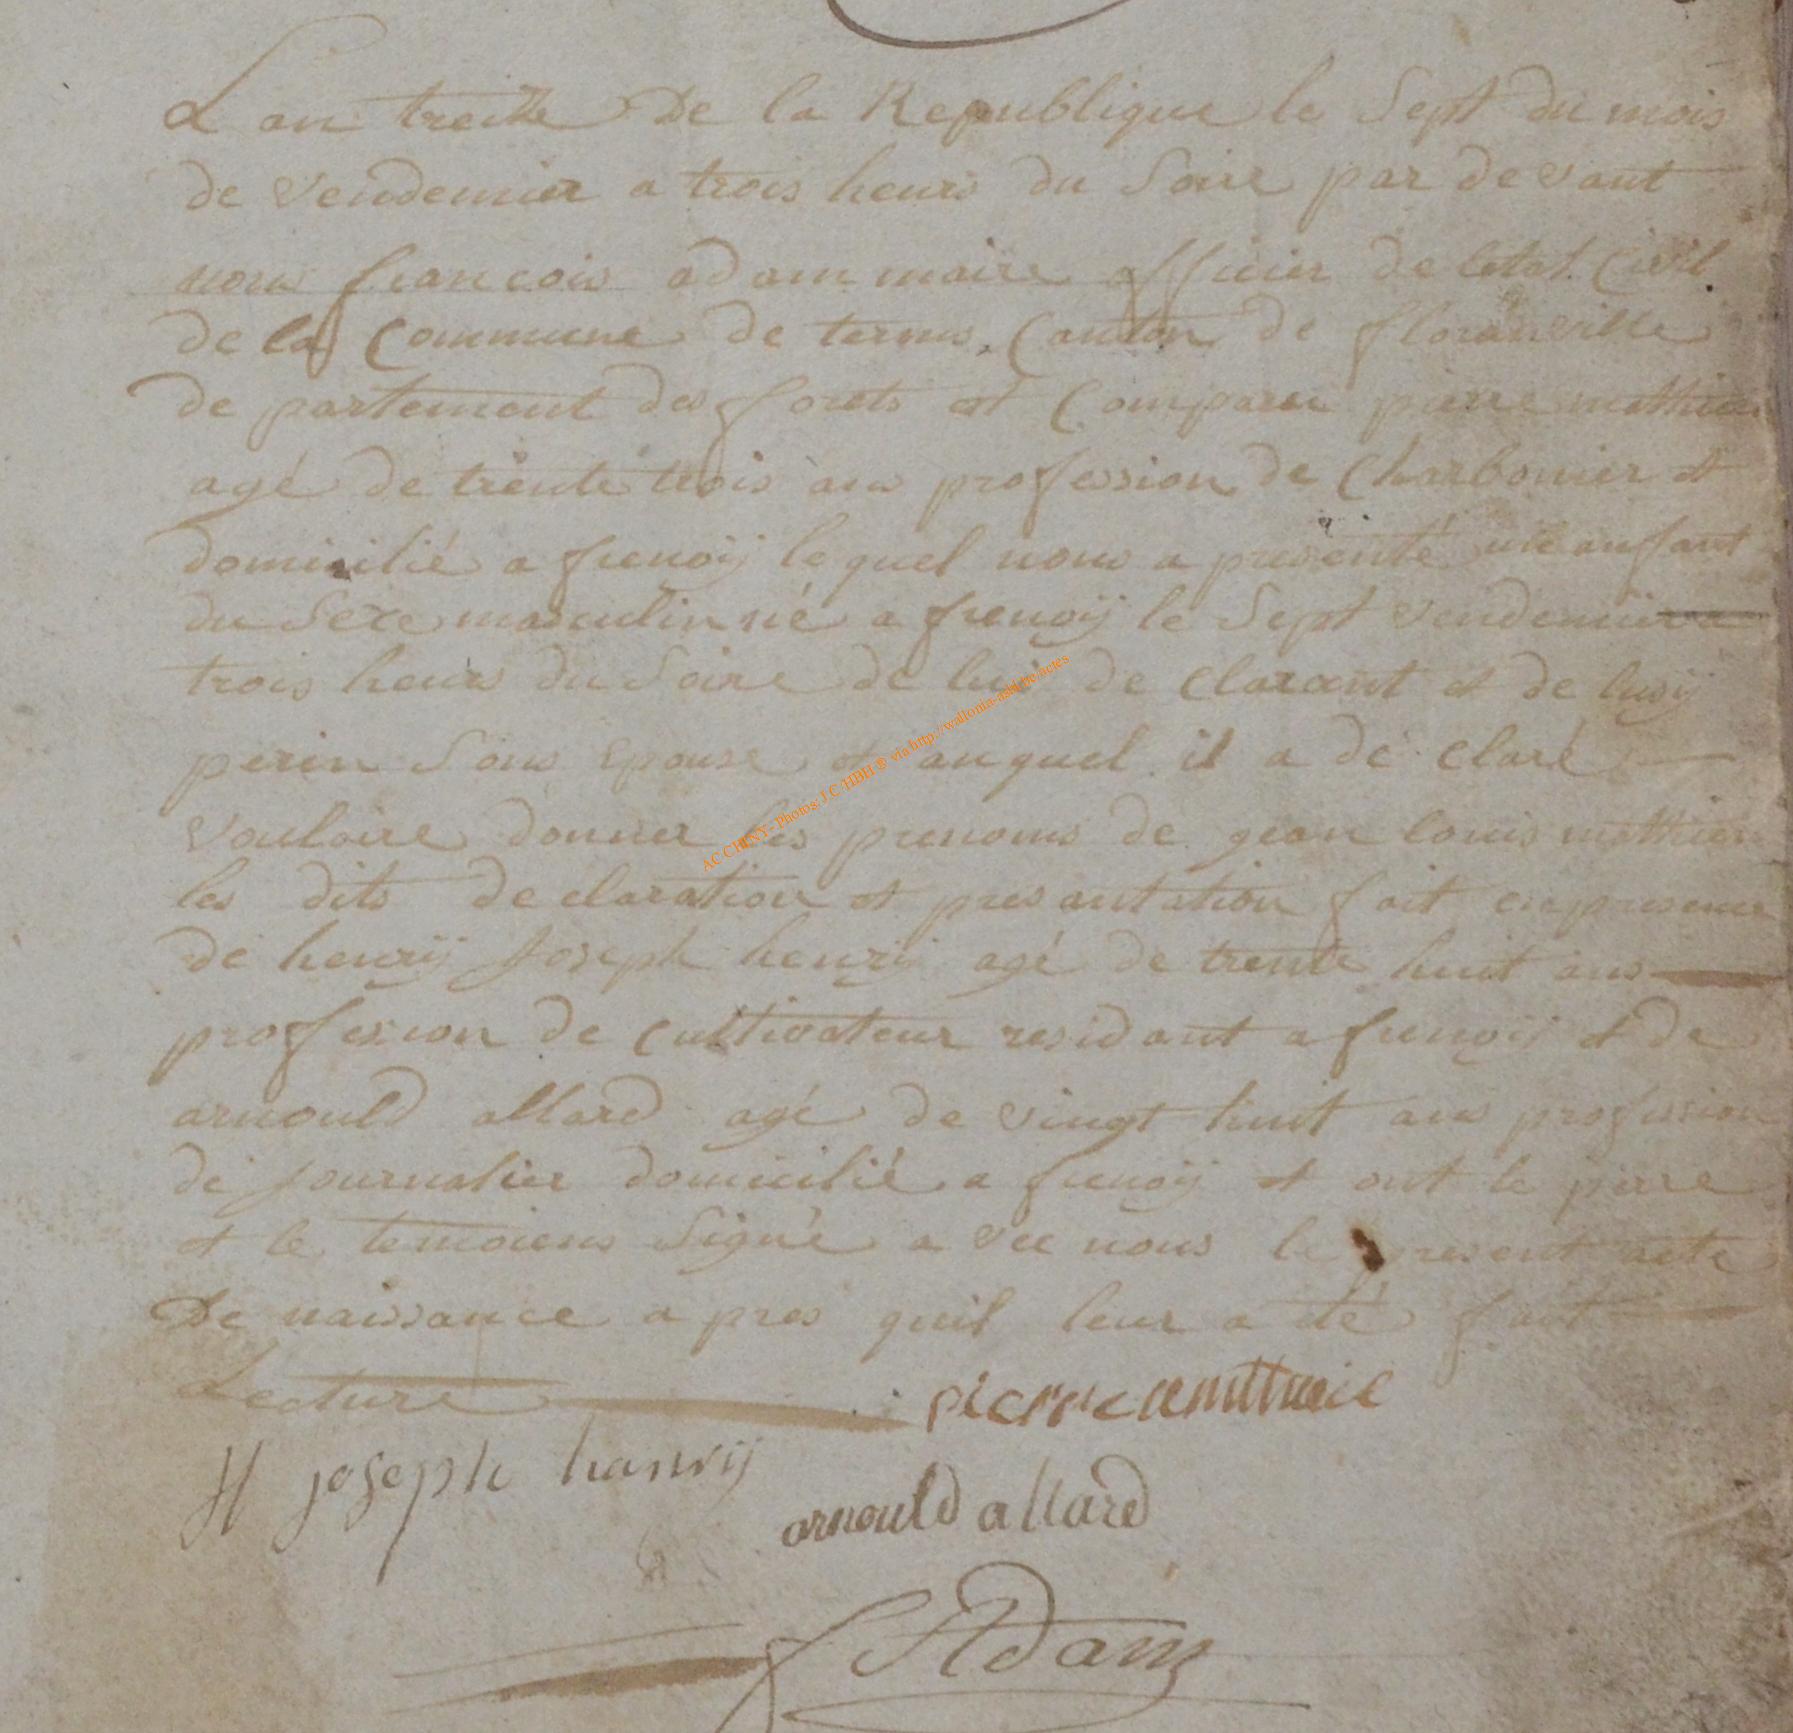 Lan treize De la Republique le Sept du mois
de vendemier a trois heurs du Soire par devant
nous francois adam maire officier de letat Civil
de la Commune de termes Canton de floranville
de partement des forets est Comparu pierre mathieu
agé de trente trois ans profession de Charbonier et
domicilié a frenoÿ le quel nous a presenté une anfant
du Sexe masculin né a frenoÿ le Sept vendemier a
trois heurs du Soire de lui de clarant et de lusÿ
perin Sons epouse et auquel il a de claré
vouloire donner les prenoms de gean louis mathieu
les dits de claration et presantation fait en presence
de henrÿ Joseph henrÿ agé de trente huit ans
profession de cultivateur residant a frenoÿ et de
arnould allard agé de vingt huit ans profession
de Journalier domicilié a frenoÿ et ont le piere
et le temoiens Signé a vec nous le present acte
De naissance a pres quil leur a eté fait
Lecture
pierre mathieu
H joseph hanrÿ
arnould allard
f Adam
AC CHINY - Photos: J.C. HBH © via http://wallonia-asbl.be-actes